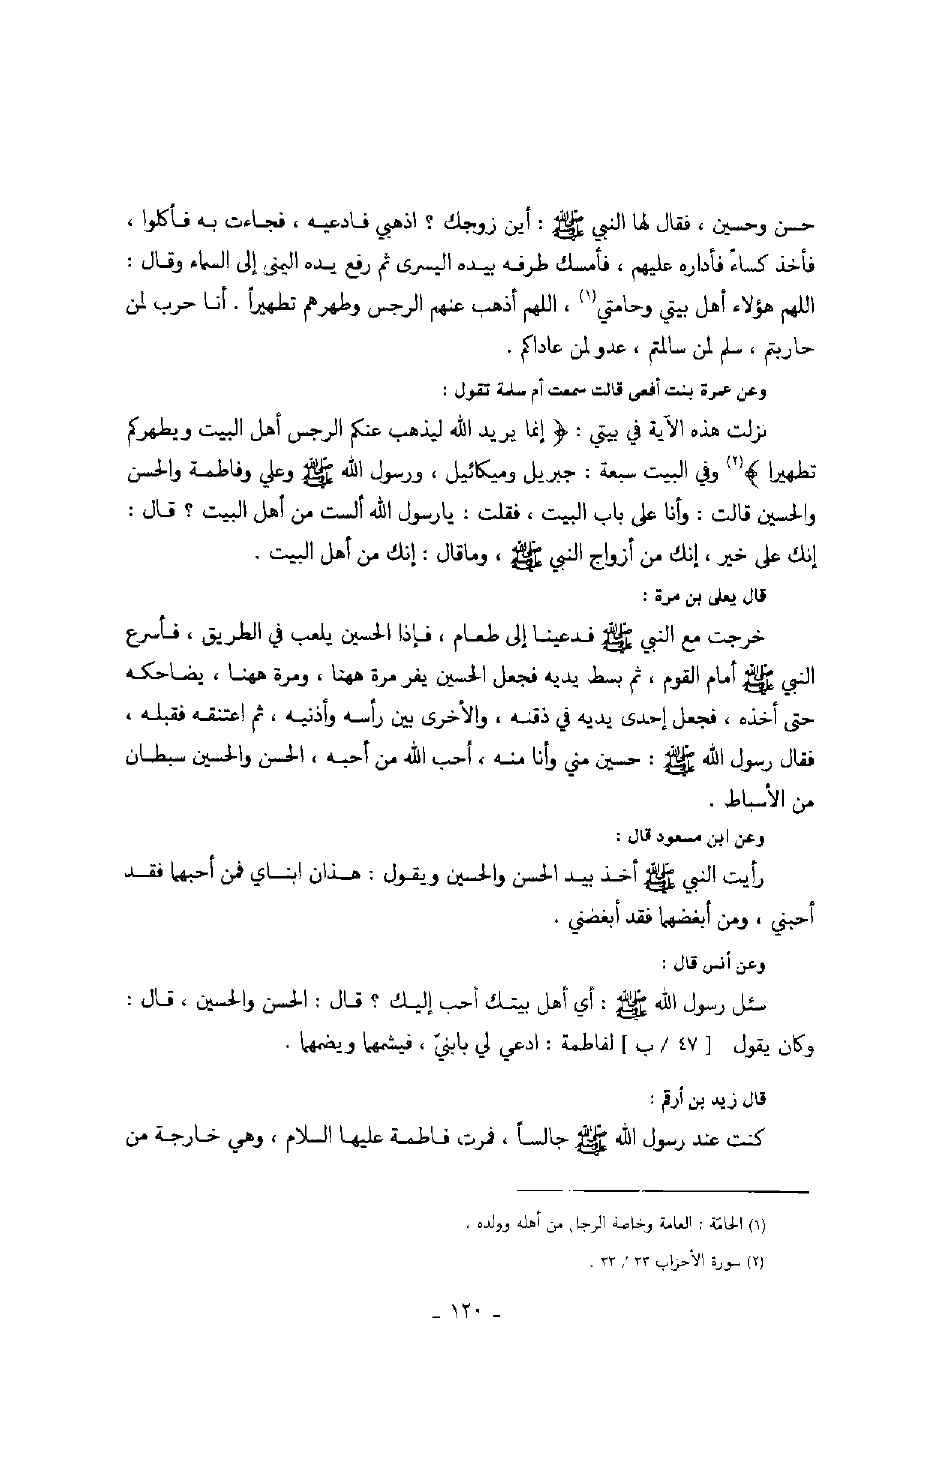 حسن وحسين ، فقال لها النبي ﷺ : أين زوجك ؟ اذهبي فادعيه ، فجاءت به فأكلوا ،
فأخذ كساءً فأداره عليهم ، فأمسك طرفه بيده اليسرى ثم رفع يده اليمنى إلى السماء وقال :
اللهم هؤلاء أهل بيتي وحامتي(١) ، اللهم أذهب عنهم الرجس وطهرهم تطهيراً . أنا حرب لمن
حاربتم ، سلم لمن سالمتم ، عدو لمن عاداكم .
وعن عمرة بنت أفعى قالت سمعت أم سلمة تقول :
نزلت هذه الآية في بيتي : ﴿ إنما يريد الله ليذهب عنكم الرجس أهل البيت ويطهركم
تطهيرا ﴾(٢) وفي البيت سبعة : جبريل وميكائيل ، ورسول الله ﷺ وعلي وفاطمة والحسن
والحسين قالت : وأنا على باب البيت ، فقلت : يارسول الله ألست من أهل البيت ؟ قال :
إنك على خير ، إنك من أزواج النبي ﷺ ، وماقال : إنك من أهل البيت .
قال يعلى بن مرة :
خرجت مع النبي ﷺ فدعينا إلى طعام ، فإذا الحسين يلعب في الطريق ، فأسرع
النبي ﷺ أمام القوم ، ثم بسط يديه فجعل الحسين يفر مرة ههنا ، ومرة ههنا ، يضاحكه
حتى أخذه ، فجعل إحدى يديه في ذقنه ، والأخرى بين رأسه وأذنيه ، ثم اعتنقه فقبله ،
فقال رسول الله ﷺ : حسين مني وأنا منه ، أحب الله من أحبه ، الحسن والحسين سبطان
من الأسباط .
وعن ابن مسعود قال :
رأيت النبي ﷺ أخذ بيد الحسن والحسين ويقول : هذان ابناي فمن أحبهما فقد
أحبني ، ومن أبغضهما فقد أبغضني .
وعن أنس قال :
سئل رسول الله ﷺ : أي أهل بيتك أحب إليك ؟ قال : الحسن والحسين ، قال :
وكان يقول [ ٤٧ / ب ] لفاطمة : ادعي لي بابنيّ ، فيشمهما ويضمهما .
قال زيد بن أرقم :
كنت عند رسول الله ﷺ جالساً ، فمرت فاطمة عليها السلام ، وهي خارجة من
(١) الحامّة : العامة وخاصة الرجل من أهله وولده .
(٢) سورة الأحزاب ٣٣ / ٣٣ .
- ١٢٠ -